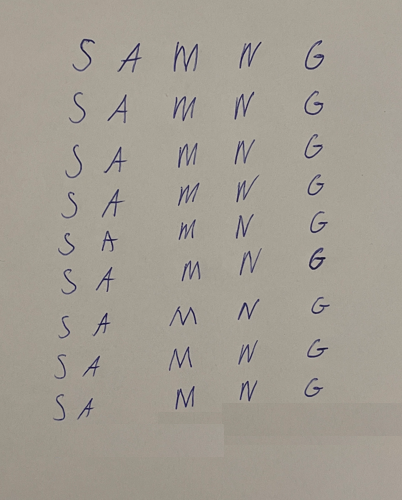 S A M N G
S A M N G
S A M N G
S A M N G
S A M N G
S A M N G
S A M N G
S A M N G
S A M N G